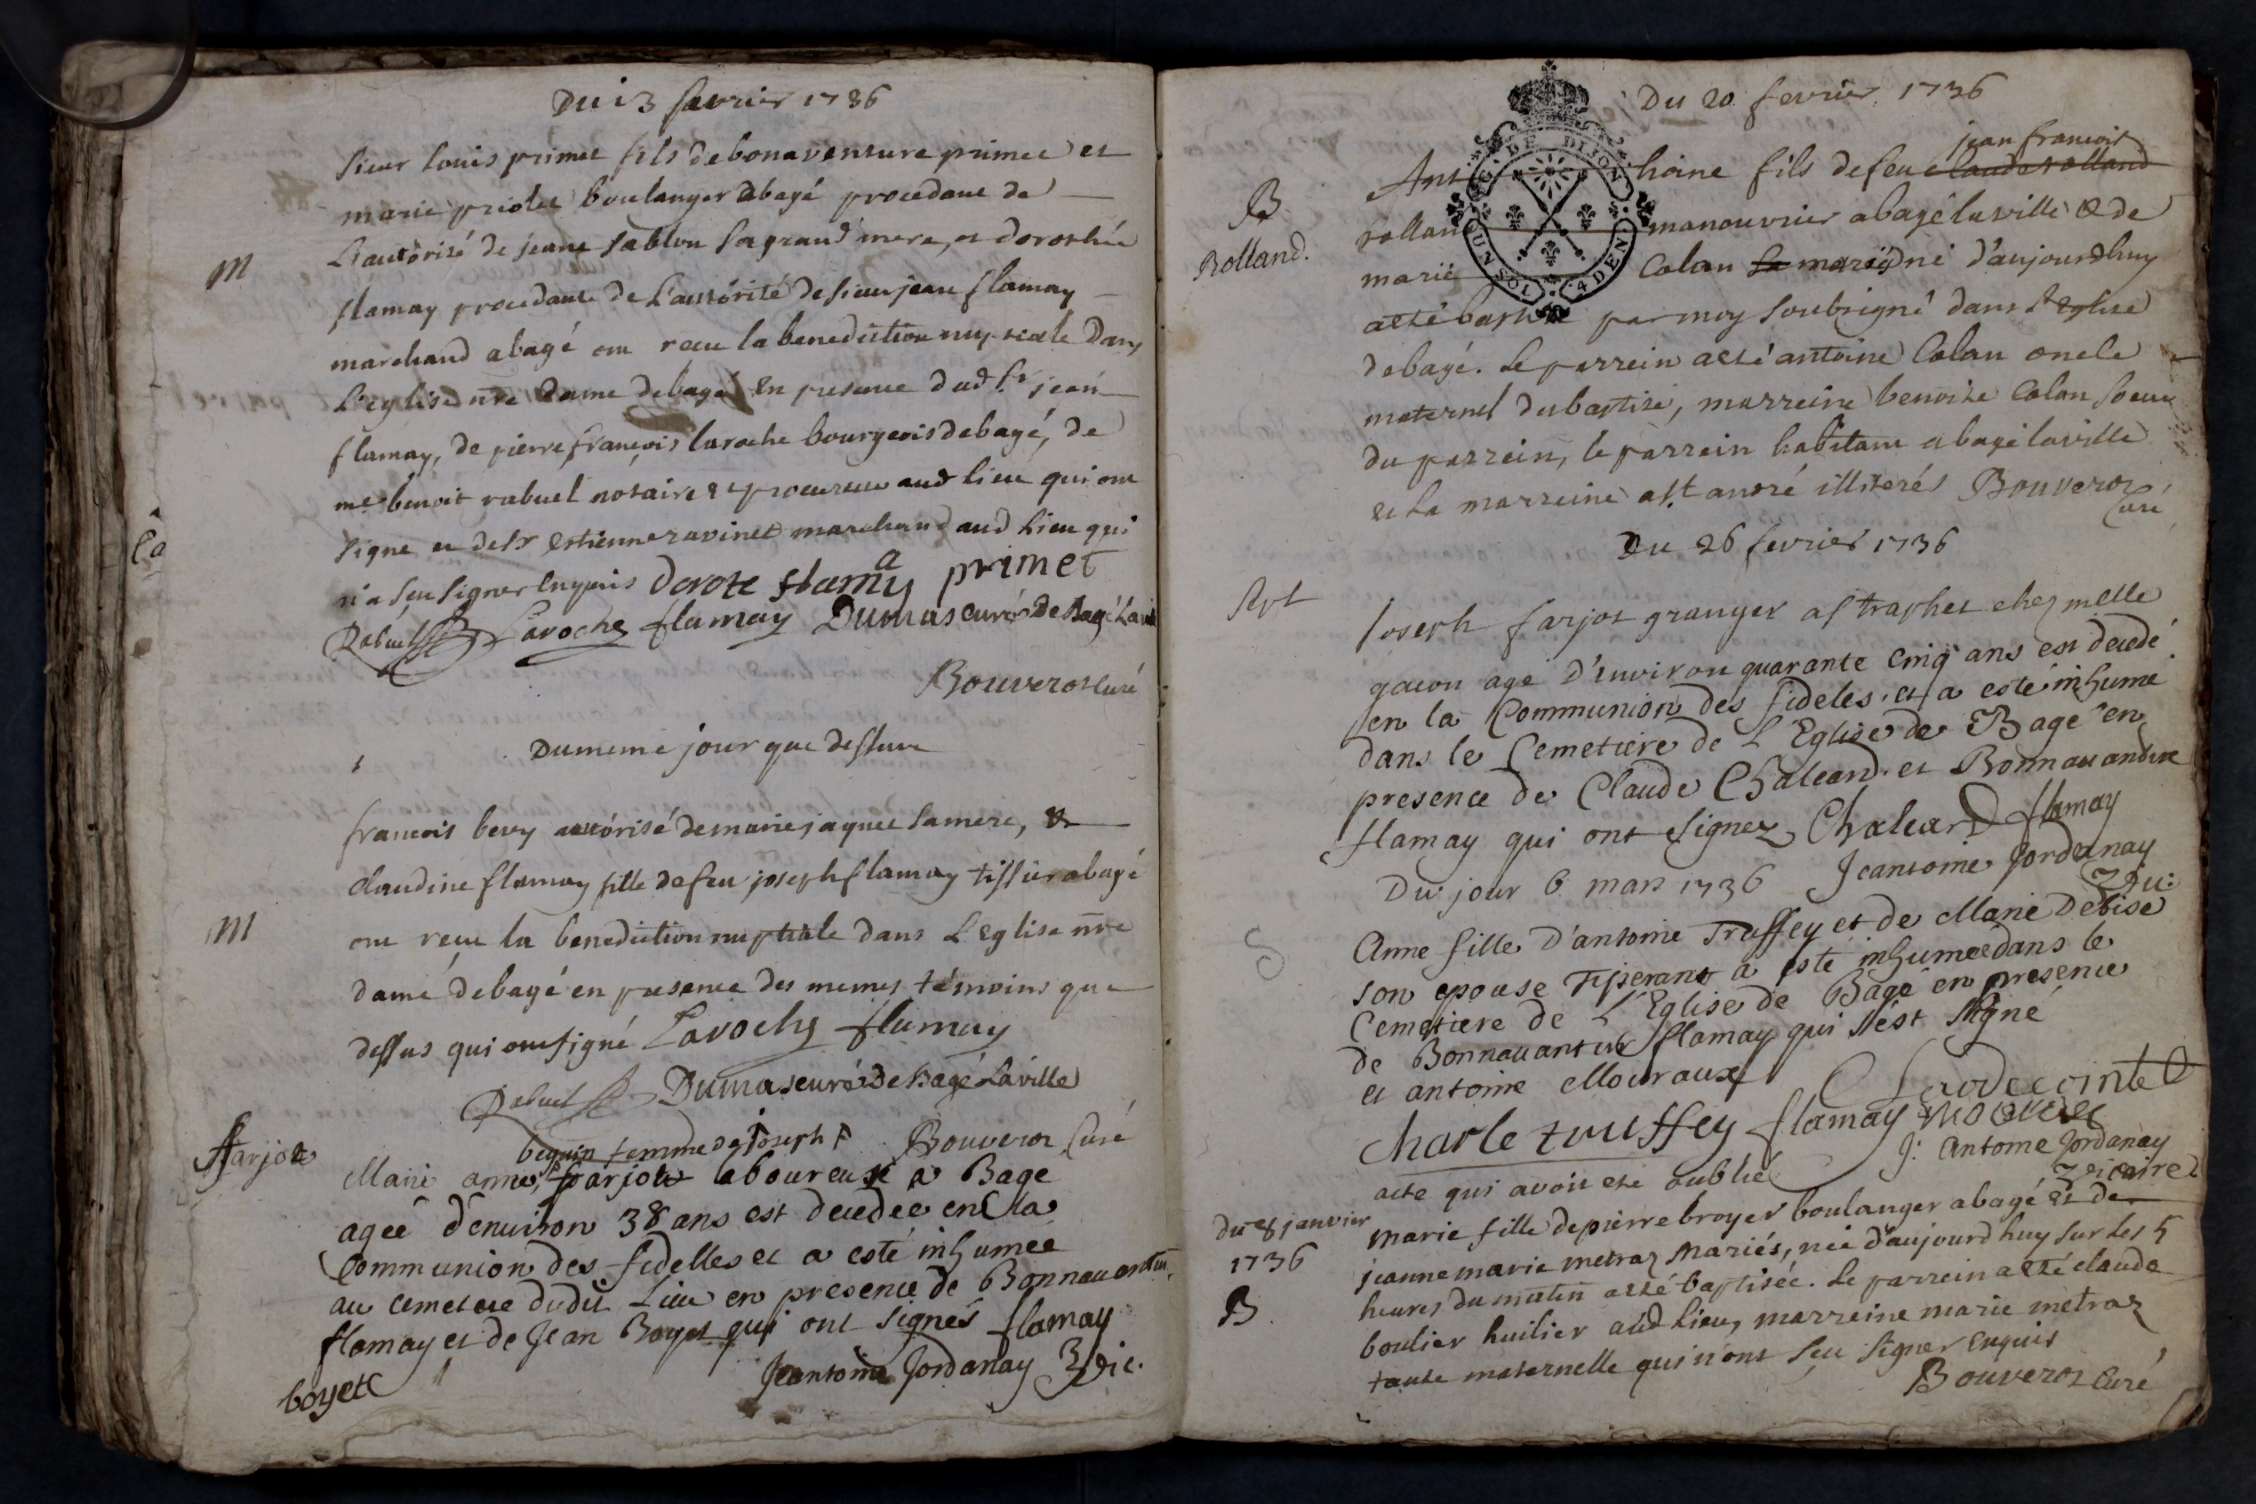 Du 13 fevrier 1736
sieur louis primet fils de bonaventure primet et
marie priolet boulanger a bagé procedant de
L'autorisé de jeane sablon sa grand mere, et dorothée
M
flamay procedante de L'autórité de sieur jean flamay
marchand a bagé ont recu la benediction nuptiale Dans
L'eglise nre dame de bagé En presence dud sr jean
flamay, de pierre françois laroche bourgeois de bagé, de
me benoit rabuel notaire et procureur aud lieu qui ont
signe et de sr estienne ravinet marchand aud Lieu qui
n'a sçeu signer Enquis Dorote flamay primet
Rabuel Laroche flamay Dumas curé de Bagé La ville
Bouverot curé
Du meme jour que dessus
francois bevy autórisé de marie jaquet sa mere, et
claudine flamay fille de feu joseph flamay tissier a bagé
M
ont recu la benediction nuptiale dans L'Eglise nre
dame de bagé en presence des memes témoins que
dessus qui ont signé Laroche flamay
Rabuel Dumas curé de Bagé Laville
Bouverot Curé
farjot
beguin femme de joseph f
Marie anne farjot laboureuse a Bage
ageé d'environ 38 ans est decedée en la
Communion des fidelles et a esté inhumée
au cemetiere dudit Lieu en presence de Bonnauantur
flamay et de Jean Boyet qui ont signés flamay
boyett
Jeantoine Jordanay Vic.
Du 20 fevrier 1736
jean francois
B
Rolland.
Anthoine fils de feu claude rolland
rolland manouvrier a bagé la ville et de
marie Colan sa mariée né d'aujourdhuy
a été baptisé par moy soubsigné dans l'eglise
de bagé. Le parrein a été antoine Colan oncle
maternel du baptisé, marreine benoite Colan soeur
du parrein, le parrein habitant a bagé laville
et La marreine a st andré illiterés Bouverot
Curé
Du 26 fevrier 1736
Spt
Joseph farjot granger a straphet chez melle
gacon age d'environ quarante cinq ans est decedé
en la Communion des fideles et a esté inhume
dans le Cemetiere de L'Eglise de Bage en
presence de Claude Chaleard et Bonnauanture
flamay qui ont signez Chaleard flamay
Du jour 6 mars 1736 Jeantoine Jordanay
Vic:
S
Anne fille D'antoine Truffey et de Marie Debise
son epouse Tiserant a esté inhumeé dans le
Cemetiere de L'Eglise de Bagé en presence
de Bonnauantur flamay qui s'est signé
et antoine Mouraux
charle truffey flamay
J: Antoine Jordanay
Vicaire
acte qui avoit eté oublié
du 8 janvier
1736
B
Marie fille de pierre broyer boulanger a bagé et de
jeanne marie metraz Mariés, née d'aujourd huy sur les 5
heures du matin a eté baptisée. Le parrein a eté claude
boulier huilier aud Lieu, marreine marie metraz
tante maternelle qui n'ont sçeu signer Enquis
Bouverot Curé
GEN. DE DIJON
UN SOL 4 DEN.